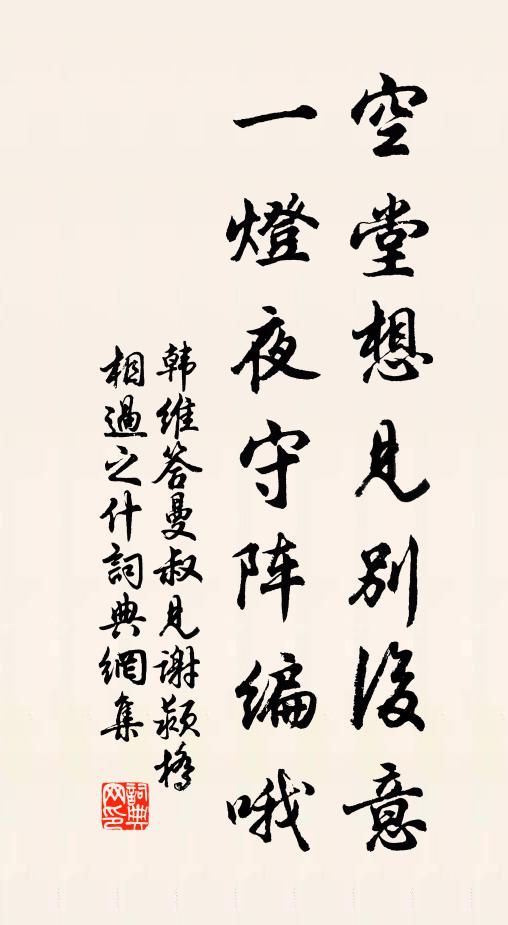 空堂想見別後意
一燈夜守阵编哦
韩维答曼叔見谢颍橋
相過之什詞典網集
詞典網印